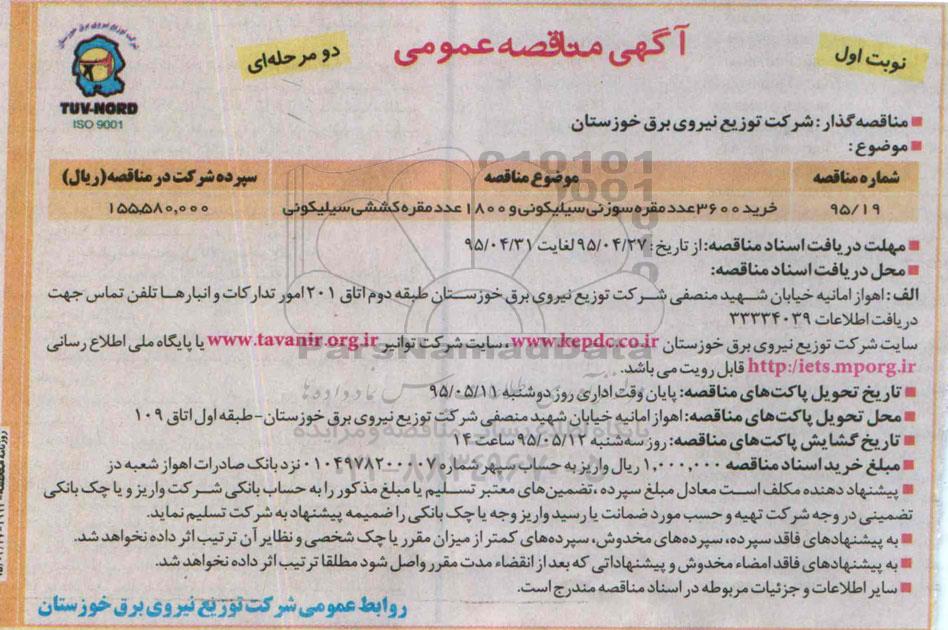 آگهی مناقصه عمومی
نوبت اول
دو مرحله‌ای
شرکت توزیع نیروی برق خوزستان
TUV-NORD
ISO 9001
مناقصه‌گذار: شرکت توزیع نیروی برق خوزستان
موضوع:
شماره مناقصه موضوع مناقصه سپرده شرکت در مناقصه (ریال)
۹۵/۱۹ خرید ۳۶۰۰ عدد مقره سوزنی سیلیکونی و ۱۸۰۰ عدد مقره کششی سیلیکونی ۱۵۵,۵۸۰,۰۰۰
مهلت دریافت اسناد مناقصه: از تاریخ: ۹۵/۰۴/۲۷ لغایت ۹۵/۰۴/۳۱
محل دریافت اسناد مناقصه:
الف: اهواز امانیه خیابان شهید منصفی شرکت توزیع نیروی برق خوزستان طبقه دوم اتاق ۲۰۱ امور تدارکات و انبارها تلفن تماس جهت
دریافت اطلاعات ۳۳۳۳۴۰۳۹
سایت شرکت توزیع نیروی برق خوزستان www.kepdc.co.ir، سایت شرکت توانیر www.tavanir.org.ir یا پایگاه ملی اطلاع رسانی
http:/iets.mporg.ir قابل رویت می باشد.
تاریخ تحویل پاکت‌های مناقصه: پایان وقت اداری روز دوشنبه ۹۵/۰۵/۱۱
محل تحویل پاکت‌های مناقصه: اهواز امانیه خیابان شهید منصفی شرکت توزیع نیروی برق خوزستان-طبقه اول اتاق ۱۰۹
تاریخ گشایش پاکت‌های مناقصه: روز سه‌شنبه ۹۵/۰۵/۱۲ ساعت ۱۴
مبلغ خرید اسناد مناقصه ۱,۰۰۰,۰۰۰ ریال واریز به حساب سپهر شماره ۰۱۰۴۹۷۸۲۰۰۰۰۷ نزد بانک صادرات اهواز شعبه دز
پیشنهاد دهنده مکلف است معادل مبلغ سپرده، تضمین‌های معتبر تسلیم یا مبلغ مذکور را به حساب بانکی شرکت واریز و یا چک بانکی
تضمینی در وجه شرکت تهیه و حسب مورد ضمانت یا رسید واریز وجه یا چک بانکی را ضمیمه پیشنهاد به شرکت تسلیم نماید.
به پیشنهادهای فاقد سپرده، سپرده‌های مخدوش، سپرده‌های کمتر از میزان مقرر یا چک شخصی و نظایر آن ترتیب اثر داده نخواهد شد.
به پیشنهادهای فاقد امضاء مخدوش و پیشنهاداتی که بعد از انقضاء مدت مقرر واصل شود مطلقا ترتیب اثر داده نخواهد شد.
سایر اطلاعات و جزئیات مربوطه در اسناد مناقصه مندرج است.
روابط عمومی شرکت توزیع نیروی برق خوزستان
ParsNamadData
پایگاه اطلاع رسانی مناقصه و مزایده